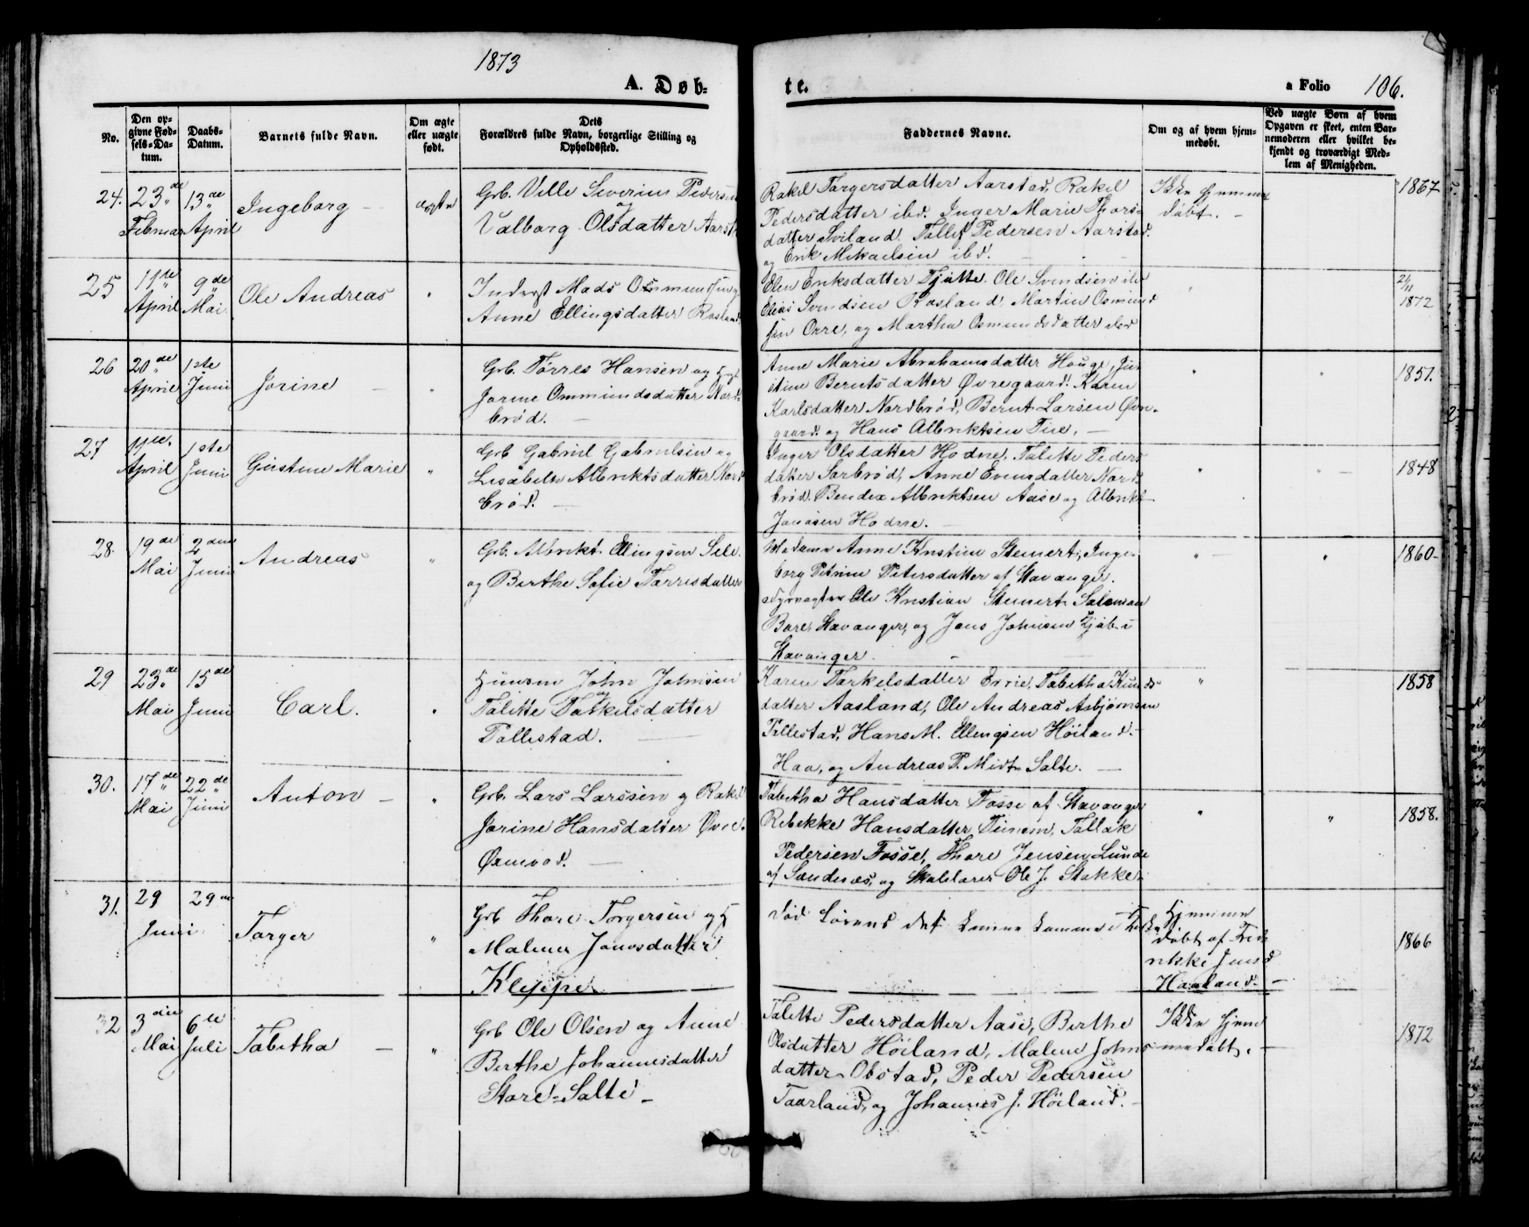 1873
A. Døb-
te.
a Folio 106.
No.
Den op-
givne Fød-
sels-Da-
tum.
Daabs-
Datum.
Barnets fulde Navn.
Om ægte
eller uægte
født.
Dets
Forældres fulde Navn, borgerlige Stilling og
Opholdssted.
Faddernes Navne.
Om og af hvem hjem-
medøbt.
Ved uægte Børn af hvem
Opgaven er skeet, enten Bar-
nemoderen eller hvilket be-
kjendt og troværdigt Med-
lem af Menigheden.
24. 23de Februar 13de April Ingeborg – ægte
Grb. Ville Severin Pedersen
og
Valborg Olsdatter Aarst
Rakel Torgersdatter Aarstad, Rakel
Pedersdatter ibd. Inger Marie Thors-
datter Sviland, Tollef Pedersen Aarstad.
og Erik Mikaelsen ibd.
Ikke hjemme
døbt. –
1867
25 11te April 9de Mai Ole Andreas "
Inderst Mads Ommundsen og
Anne Ellingsdatter Rosland
Elen Eriksdatter Tjøtte. Ole Svendsen ibd
Elias Svendsen Rosland, Martin Osmund
sen Orre, og Martha Osmundsdatter ibd
"
21/11
1872
26 20de April 1ste Juni Jorine – "
Grb. Tørres Hansen og
Jorine Ommundsdatter Nord
brød. –
Anne Marie Abrahamsdatter Houge, Jus-
tine Berntsdatter Øvregaard. Karen
Karlsdatter Nordbrød, Bernt Larsen Øvre-
gaard. og Hans Albriktsen Tue. –
" "
1851.
27 11te April 1ste Juni Gustine Marie "
Grb Gabriel Gabrielsen og
Lisabelte Albriktsdatter Nord
brød. –
Inger Olsdatter Hodne, Talette Peders
datter Sørbrød, Anne Evensdatter Nord-
brød, Bendix Albriktsen Aase og Albrikt
Jonasen Hodne. –
" "
1848
28. 19de Mai 2den Juni Andreas "
Grb. Albrikt Ellingsen Sele
og Berthe Sofie Tørresdatter
Madame Anne Kristine Steinert, Inge-
borg Petrine Petersdatter af Stavanger.
Ole Kristian Steinert Salomon
Bore, Stavanger, og Jens Johnsen Kjøb. i
Stavanger.
" – "
1860
29 23de Mai 15de Juni Carl. "
John Johnsen
og
Talitte Torkelsdatter
Tollestad. –
Karen Torkelsdatter Orrie, Tabitha Knuds-
datter Aasland, Ole Andreas Asbjørnsen
Tillestad, Hans M. Ellingsen Høiland.
Haa, og Andreas P. Midt-Salte. –
"
1858
30. 17de Mai 22de Juni Anton – "
Grb. Lars Larssen og Rakel
Jorine Hansdatter Øvre-
Øxnevad. –
Tabitha Hansdatter Fosse af Stavanger
Rebekke Hansdatter Tunem, Tollak
Pedersen Fosse, Thore Jensen Lunde
af Sandnæs, og Skolelærer Ole J. Stokke.
" "
1858.
31. 29 Juni 29 Torger "
Grb Thore Torgersen og H
Malene Jonasdatter
Kleppe
død Lørens det
Hjemme
døbt af Fred-
rikke Jensd
Haaland. –
1866
32 3den Mai 6te Juli Tabitha – "
Grb Ole Olsen og Anne
Bertha Johannesdatter
Store-Salte –
Talitte Pedersdatter Aase, Berthe
Olsdatter Høiland, Malene Johns-
datter Obstad, Peder Pedersen
Taarland, og Johannes J. Høiland. –
Ikke hjem
medøbt. –
1872